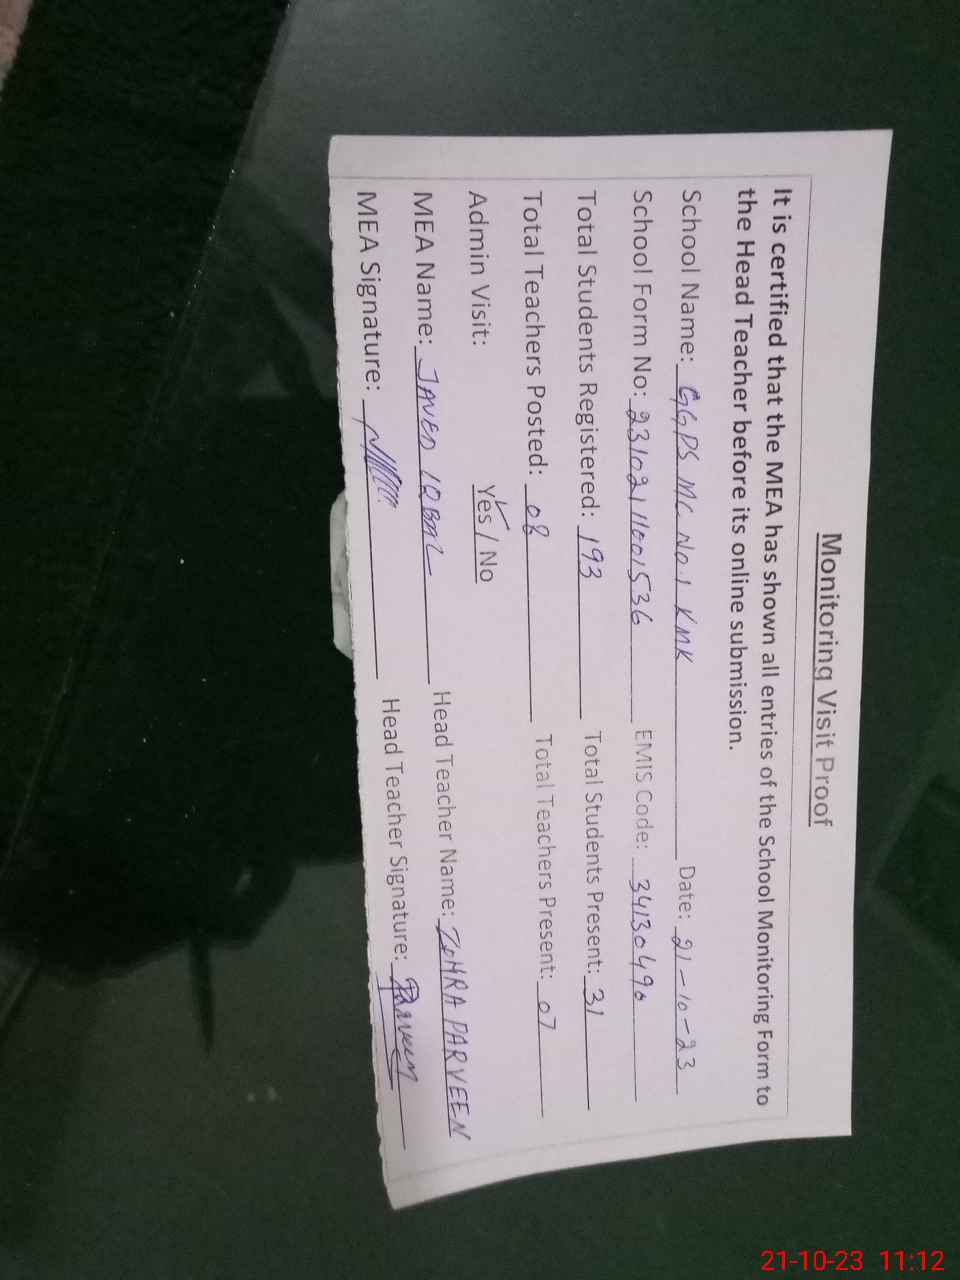 Monitoring Visit Proof
It is certified that the MEA has shown all entries of the School Monitoring Form to
the Head Teacher before its online submission.
School Name: GGPS MC No.1 KMK Date: 21-10-23
School Form No: 2310211001536 EMIS Code: 34130490
Total Students Registered: 193 Total Students Present: 31
Total Teachers Posted: 08 Total Teachers Present: 07
Admin Visit: Yes / No
MEA Name: JAVED IQBAL Head Teacher Name: ZOHRA PARVEEN
MEA Signature: Head Teacher Signature: Parveen
21-10-23 11:12